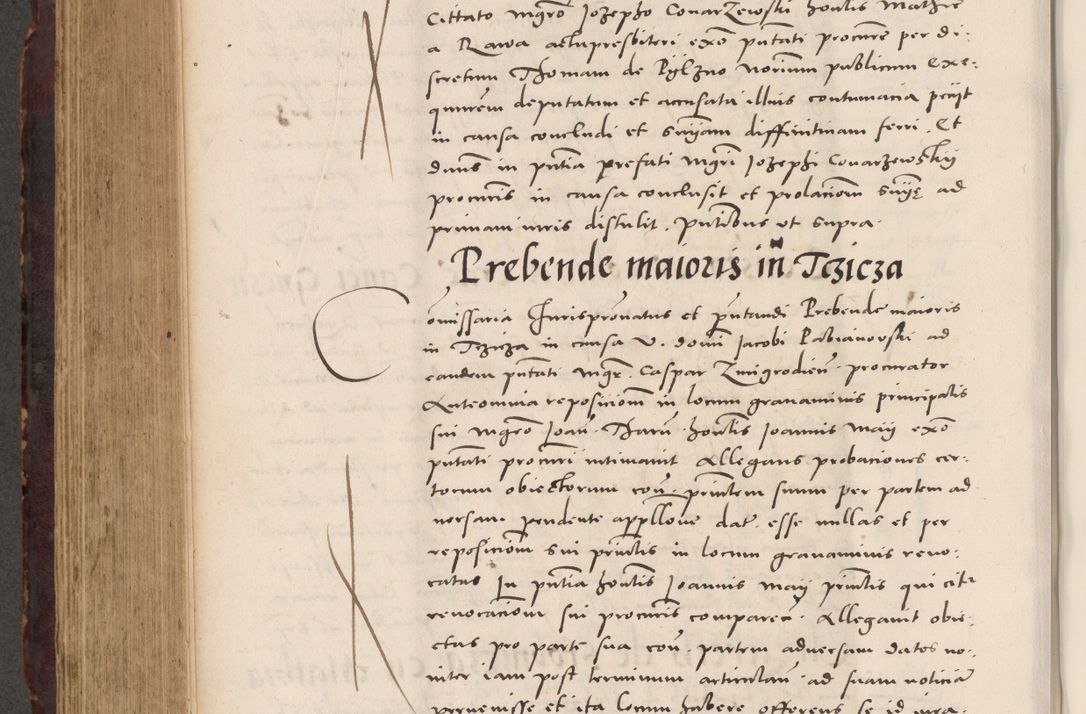 Cittato mgro Jozepho Conarzewski honlis Mathie
a Rawa achipresbiteri exo putati procure per di:
scretum Thomam de Pylzno norium publicum exe:
quurem deputatum et accusata illius contumacia peiit
in causa concludi et sniam diffinitinam ferri. Et
duns in pntia prefati mgri Jozephi Conarzewskij
procuris in causa conclusit et prolaciom snie ad
primam iuris distulit. pntibus ut supra.
Prebende maioris in Tczicza
Comissaria Jurispronatus et putandi Prebende maioris
in Tczicza in causa v. domi Jacobi Pabianowski ad
eandem putati mgr. Caspar Zmigrodien. procurator
Anteomnia reposiciom in locum granaminis principalis
sui mgro Joan. Tharn. honlis Joannis maij exo
putati procuri intimauit Allegans probaciones cer-
torum obiectorum con. printem suum per partem ad
uersam. pendente appllone dat. esse nullas et per
reposiciom sui prinlis in locum granaminis reuo:
catas In pntia honlis Joannis maij prinlis qui citra
reuocaciom sui procuris comparen. Allegauit obie:
ctus pro parte sua con. partem aduersam datos no:
uiter iam post terminum articulan. ad suam noticia
peruenisse et ita locum habere offerens se id iura: